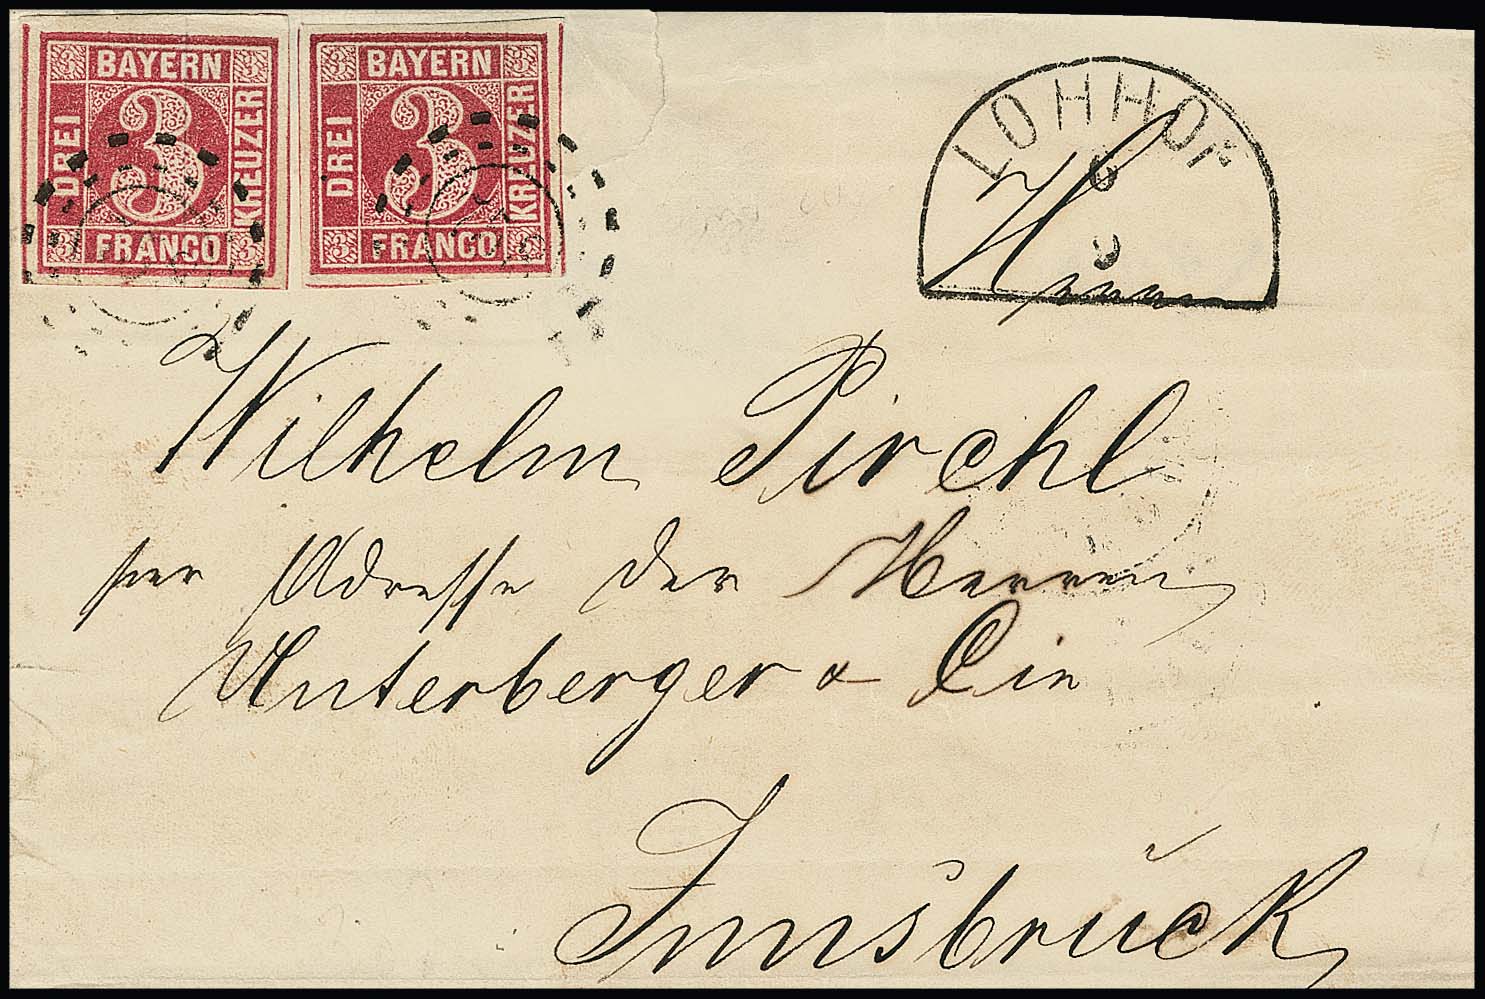 BAYERN
DREI 3 KREUZER
FRANCO
BAYERN
DREI 3 KREUZER
FRANCO
LOHHOF
6
9
Herrn
Wilhelm Pirchl
per Adresse der Herren
Unterberger &
Innsbruck